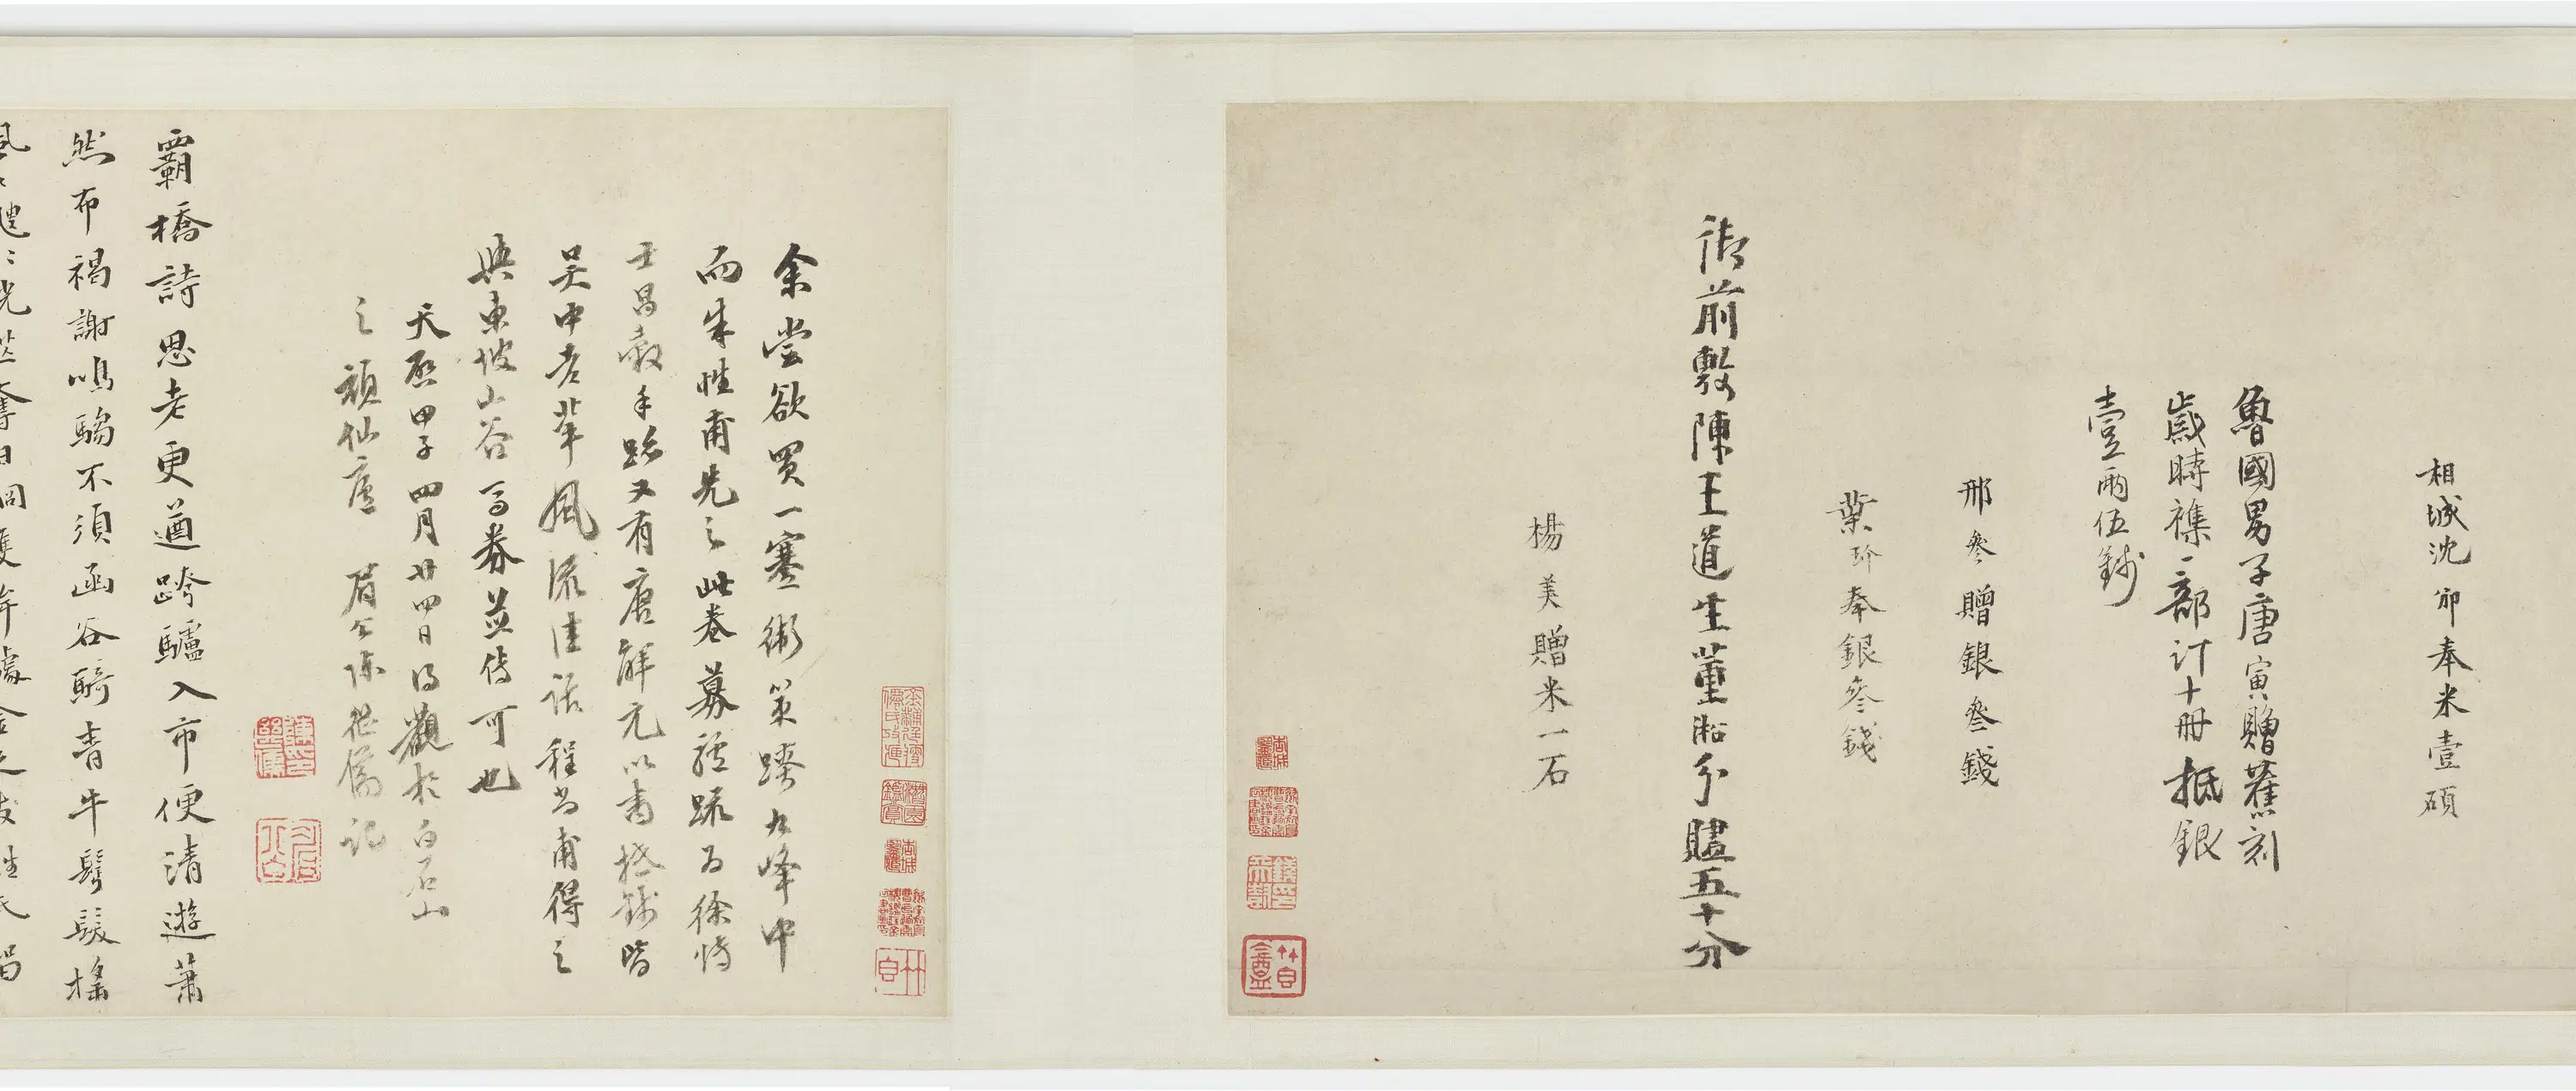 相城沈邠奉米壹碩
魯國男子唐寅贈舊刻
歲時襍一部計十冊抵銀
壹兩伍錢
邢參贈銀叁錢
葉玠奉銀叁錢
楊美贈米一石
御前敷陳王道生董淞分贐五十分
余嘗欲買一蹇衛策蹻九峰中
而朱性甫先之此卷募驢疏為徐博
士昌穀手跡又有唐解元以書抵錢皆
吳中老輩風流佳話程尚甫得之
與東坡山谷馬券並傳可也
天啟甲子四月廿四日得觀於白石山
之頑仙廬 眉公陳繼儒記
霸橋詩思老更遒跨驢入市便清遊蕭
然布褐謝鳴騶不須函谷騎青牛鬅髮搖